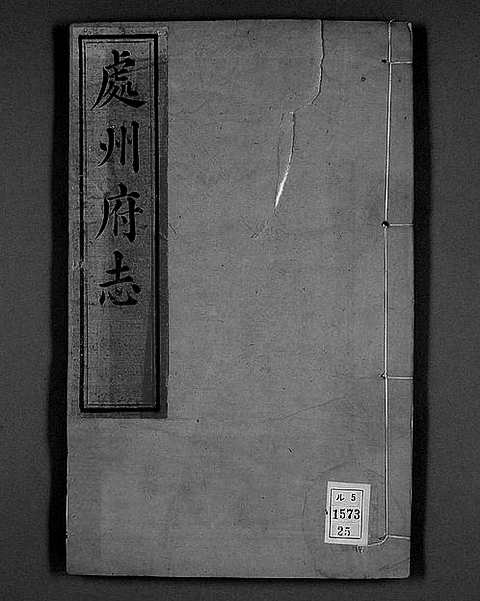 處州府志
ル 5
1573
25